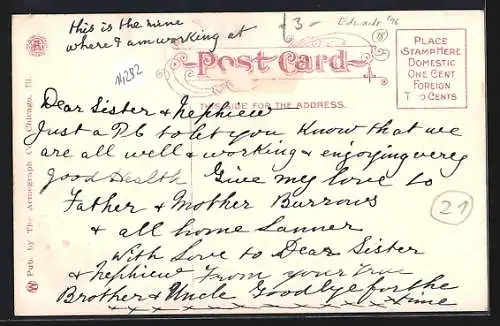 this is the mine
where I am working at
14282
3-
Edwards
18
Post Card
THIS SIDE FOR THE ADDRESS.
PLACE
STAMP HERE
DOMESTIC
ONE CENT
FOREIGN
TWO CENTS
Dear Sister & Nephiew
Just a PC to let you Know that we
are all well & working & enjoying verey
good Health Give my love to
Father & Mother Burrows
& all home
With Love to Dear Sister
& Nephiew From your true
Brother & Uncle Goodbye for the
x x x x x x x x x x x x x time
21
Pub. by The Acmegraph Co., Chicago, Ill.